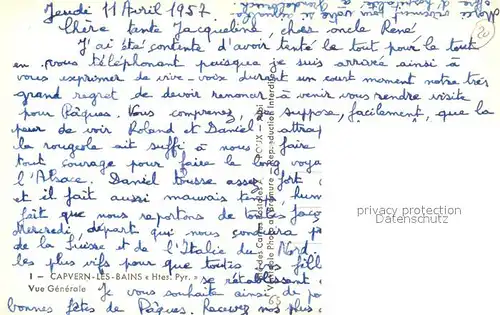 Jeudi 11 Avril 1957.
Chère tante Jacqueline, cher oncle René
J'ai été contente d'avoir tenté le tout pour le tout
en vous téléphonant puisque je suis arrivée ainsi à
vous exprimer de vive-voix durant un court moment notre très
grand regret de devoir renoncer à venir vous rendre visite
pour Pâques. Vous comprenez, je suppose, facilement, que la
peur de voir Roland et Daniel attrap
la rougeole ait suffi à nous faire
tout courage pour faire le long voya
l'Alsace. Daniel tousse assez fort
et il fait aussi mauvais temps, hum
fait que nous reportons de toutes faço
Mercredi, départ qui nous conduira p
de la Suisse et de l'Italie du Nord
les plus vifs pour que toutes nos fill
se rétablissent
Je vous souhaite ainsi de pa
bonnes fêtes de Pâques. Recevez nos plus
1 - CAPVERN-LES-BAINS « Htes. Pyr. »
Vue Générale
des Cartes Postales
POUX - Albi
Véritable Photo au Bromure - Reproduction Interdite
privacy protection
20
65